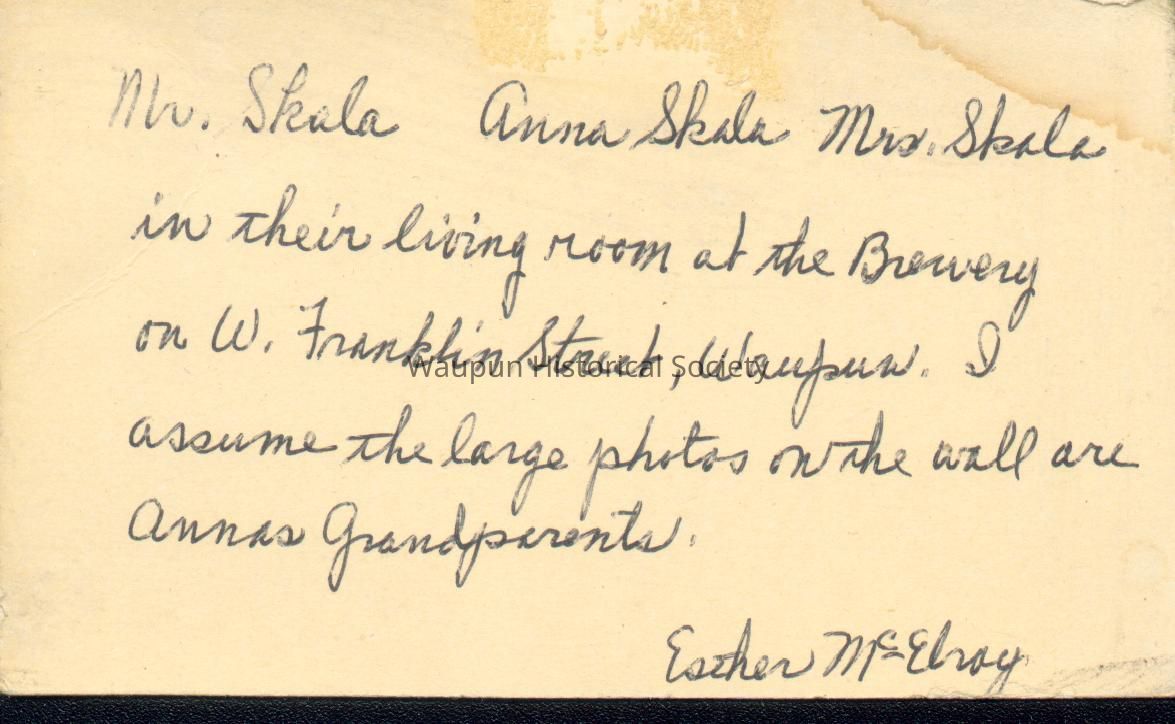 Mr. Skala Anna Skala Mrs. Skala
in their living room at the Brewery
on W. Franklin Street, Waupun. I
Waupun Historical Society
assume the large photos on the wall are
Annas Grandparents.
Esther McElroy